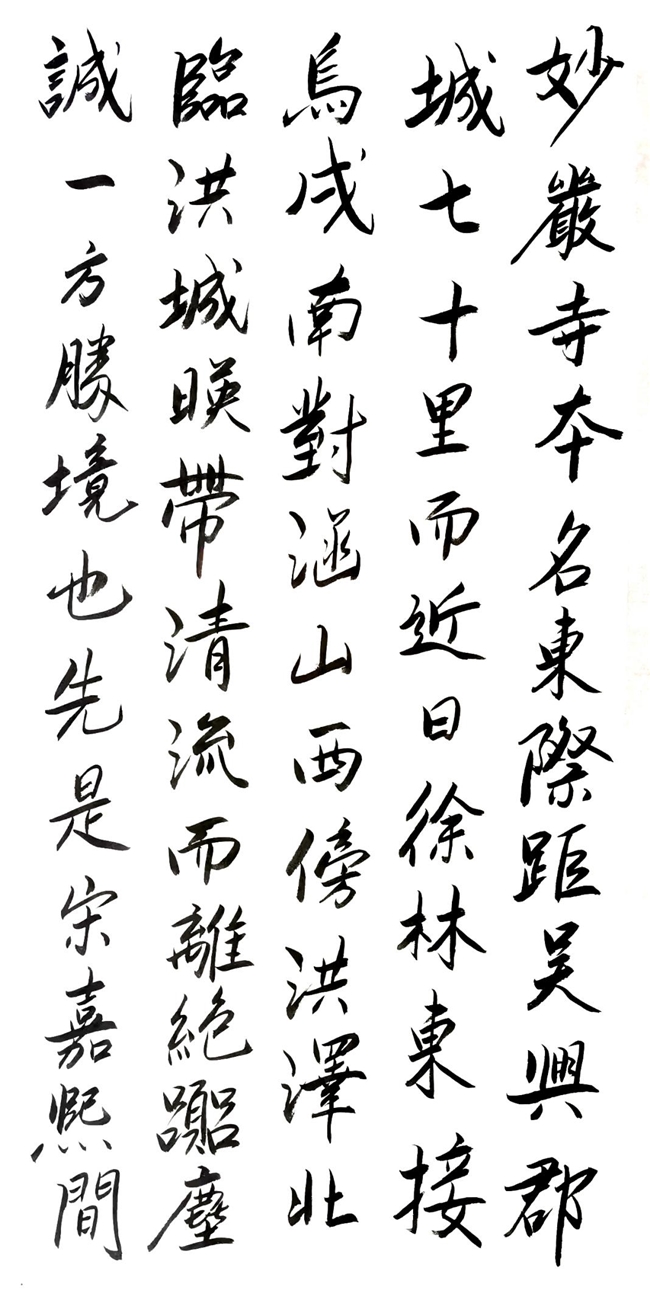 妙嚴寺本名東際距吳興郡
城七十里而近曰徐林東接
烏戍南對涵山西傍洪澤北
臨洪城暎帶清流而離絕囂塵
誠一方勝境也先是宋嘉熙間